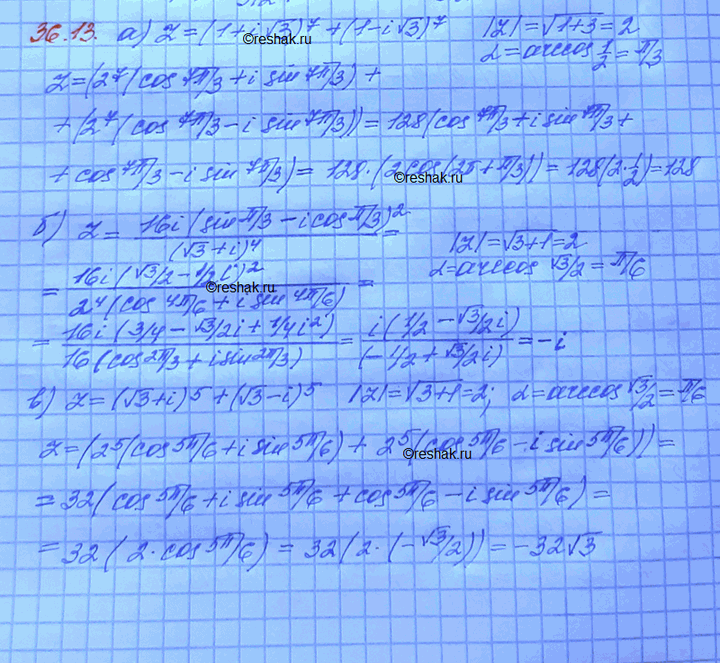 36.13. а) z=(1+i√3)⁷+(1-i√3)⁷ |z|=√1+3=2
α=arccos 1/2=π/3
©reshak.ru
z=(2⁷(cos 7π/3+i sin 7π/3)+
+(2⁷(cos 7π/3-i sin 7π/3))=128(cos 7π/3+i sin 7π/3+
+cos 7π/3-i sin 7π/3)=128·(2cos(2π+π/3))=128(2·1/2)=128
©reshak.ru
б) z= 16i(sin π/3-i cos π/3)²/(√3+i)⁴ =
|z|=√3+1=2
α=arccos √3/2=π/6
= 16i(√3/2-1/2 i)²/2⁴(cos 4π/6+i sin 4π/6) =
©reshak.ru
= 16i(3/4-√3/2i+1/4i²)/16(cos 2π/3+i sin 2π/3) = i(1/2-√3/2i)/(-1/2+√3/2i) =-i
в) z=(√3+i)⁵+(√3-i)⁵ |z|=√3+1=2; α=arccos √3/2=π/6
z=(2⁵(cos 5π/6+i sin 5π/6)+2⁵(cos 5π/6-i sin 5π/6))=
©reshak.ru
=32(cos 5π/6+i sin 5π/6+cos 5π/6-i sin 5π/6)=
=32(2·cos 5π/6)=32(2·(-√3/2))=-32√3